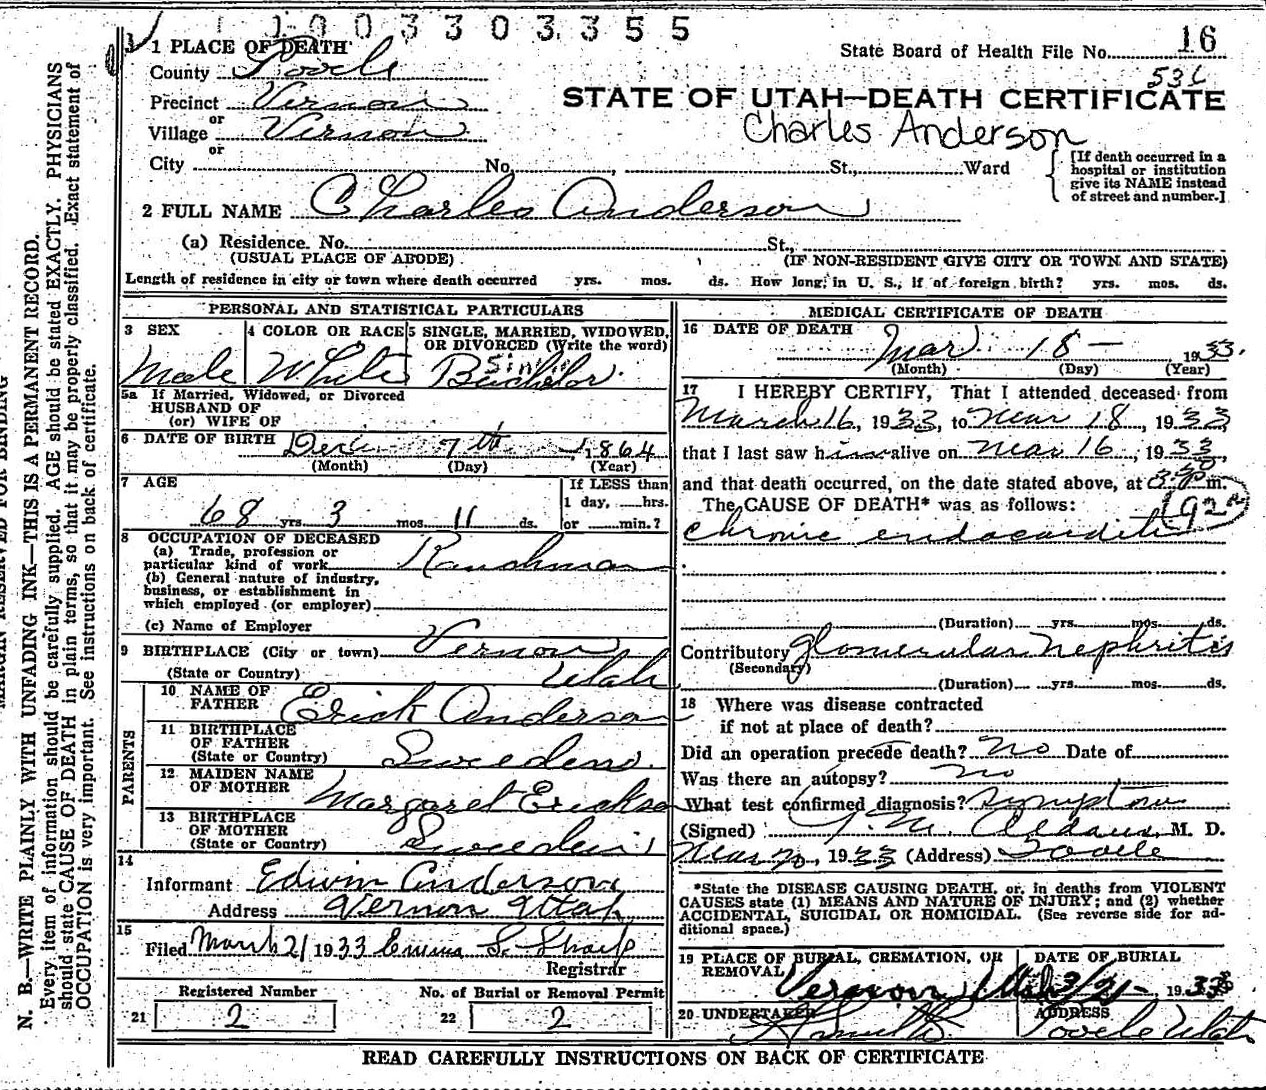 1 0 0 3 3 0 3 5 5
1 PLACE OF DEATH
State Board of Health File No. 16
County Tooele
Precinct Vernon
or
STATE OF UTAH—DEATH CERTIFICATE
Village Vernon
Charles Anderson
or
City No. St., Ward
[If death occurred in a hospital or institution give its NAME instead of street and number.]
2 FULL NAME Charles Anderson
(a) Residence. No. St.,
(USUAL PLACE OF ABODE) (IF NON-RESIDENT GIVE CITY OR TOWN AND STATE)
Length of residence in city or town where death occurred yrs. mos. ds. How long, in U. S., if of foreign birth? yrs. mos. ds.
PERSONAL AND STATISTICAL PARTICULARS
3 SEX
Male
4 COLOR OR RACE
White
5 SINGLE, MARRIED, WIDOWED,
OR DIVORCED (Write the word)
Single
Bachelor
5a If Married, Widowed, or Divorced
HUSBAND OF
(or) WIFE OF
6 DATE OF BIRTH Dec 7th, 1864
(Month) (Day) (Year)
7 AGE
68 yrs. 3 mos. 11 ds.
If LESS than
1 day, hrs.
or min.?
8 OCCUPATION OF DECEASED
(a) Trade, profession or
particular kind of work Ranchman
(b) General nature of industry,
business, or establishment in
which employed (or employer)
(c) Name of Employer
9 BIRTHPLACE (City or town) Vernon
(State or Country) Utah
PARENTS
10 NAME OF
FATHER Erick Anderson
11 BIRTHPLACE
OF FATHER
(State or Country) Sweeden
12 MAIDEN NAME
OF MOTHER Margaret Erickson
13 BIRTHPLACE
OF MOTHER
(State or Country) Sweeden
14
Informant Edwin Anderson
Address Vernon Utah
15
Filed March 21 1933 Emma S. Sharp
Registrar
Registered Number
21 2
No. of Burial or Removal Permit
22 2
MEDICAL CERTIFICATE OF DEATH
16 DATE OF DEATH Mar 18 — 1933.
(Month) (Day) (Year)
17 I HEREBY CERTIFY, That I attended deceased from
March 16, 1933, to Mar 18, 1933
that I last saw him alive on Mar 16, 1933,
and that death occurred, on the date stated above, at m.
The CAUSE OF DEATH* was as follows:
Chronic endocarditis
(Duration) yrs. mos. ds.
Contributory glomerular Nephritis
(Secondary)
(Duration) yrs. mos. ds.
18 Where was disease contracted
if not at place of death?
Did an operation precede death? No Date of
Was there an autopsy? no
What test confirmed diagnosis? Symptoms
(Signed) M. D.
Mar 20, 1933 (Address) Tooele
*State the DISEASE CAUSING DEATH, or, in deaths from VIOLENT
CAUSES state (1) MEANS AND NATURE OF INJURY; and (2) whether
ACCIDENTAL, SUICIDAL OR HOMICIDAL. (See reverse side for ad-
ditional space.)
19 PLACE OF BURIAL, CREMATION, OR
REMOVAL
Vernon Utah
DATE OF BURIAL
3/21 - 1933
20 UNDERTAKER
ADDRESS
Tooele Utah
READ CAREFULLY INSTRUCTIONS ON BACK OF CERTIFICATE
MARGIN RESERVED FOR BINDING
N. B.—WRITE PLAINLY WITH UNFADING INK—THIS IS A PERMANENT RECORD.
Every item of information should be carefully supplied. AGE should be stated EXACTLY. PHYSICIANS
should state CAUSE OF DEATH in plain terms, so that it may be properly classified. Exact statement of
OCCUPATION is very important. See instructions on back of certificate.